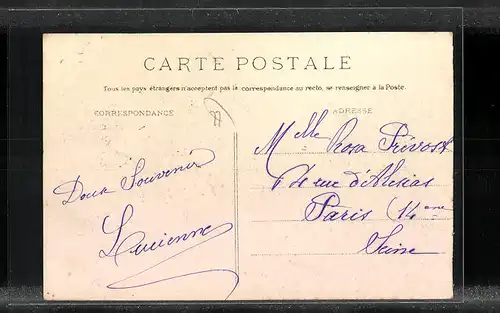 CARTE POSTALE
Tous les pays étrangers n'acceptent pas la correspondance au recto, se renseigner à la Poste.
CORRESPONDANCE
ADRESSE
Doux Souvenir
Lucienne
Mlle Rosa Prévost
rue d'Alésias
Paris (14eme
Seine